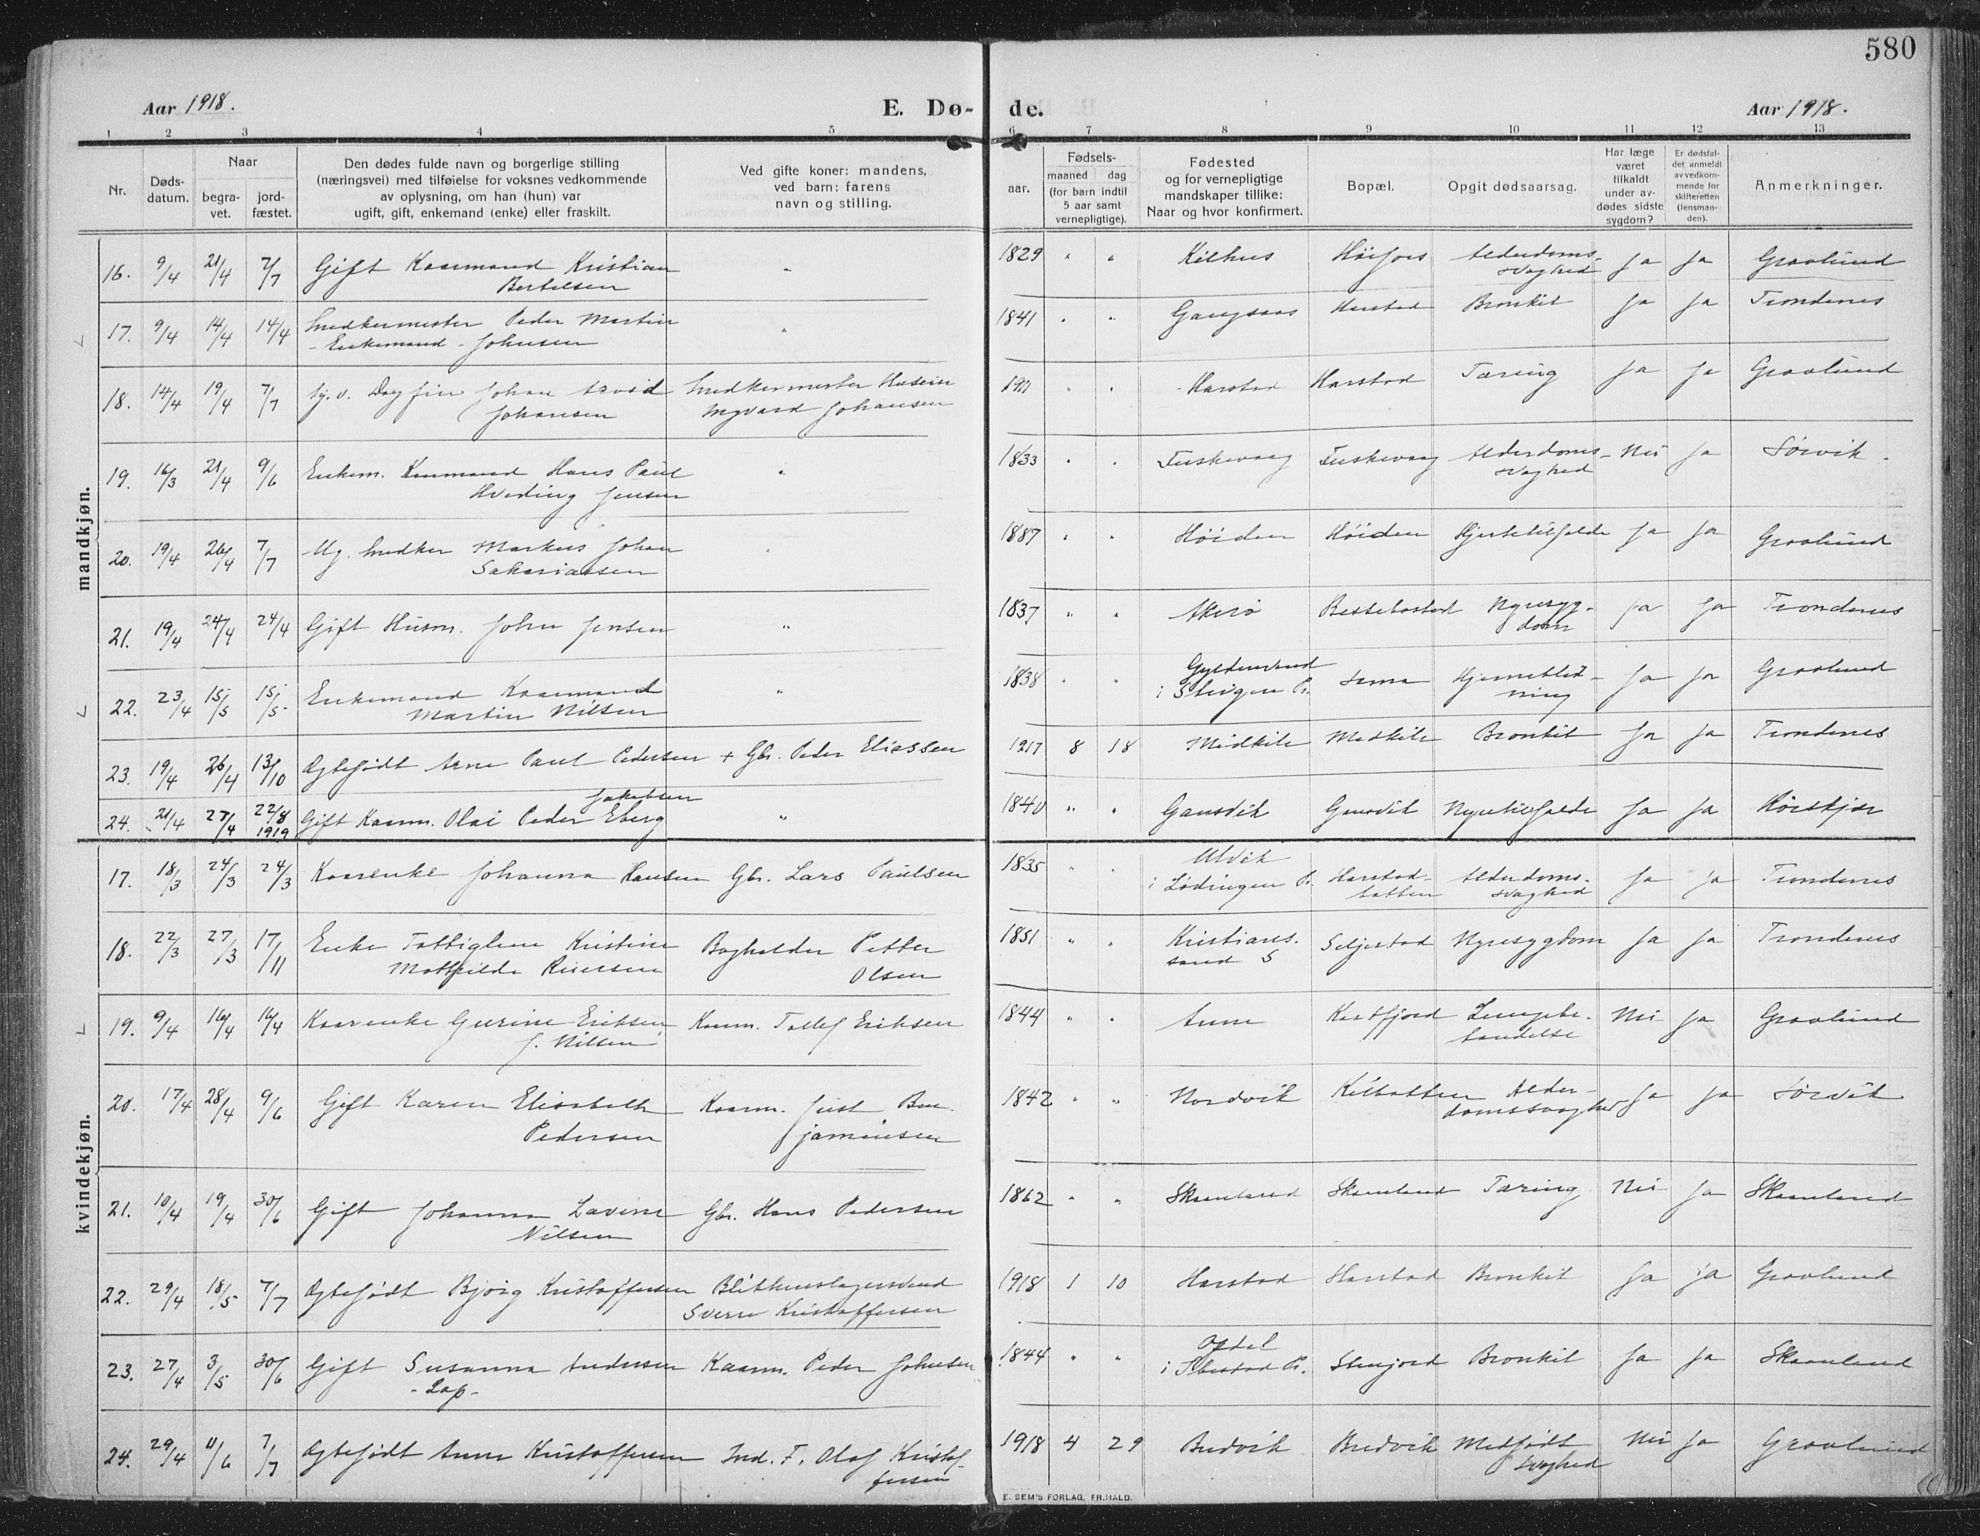 580
Aar 1918.
E. Dø-
de.
Aar 1918.
1 2 3 4 5 6 7 8 9 10 11 12 13
Nr.
Døds-
datum.
Naar
begra-
vet.
jord-
fæstet.
Den dødes fulde navn og borgerlige stilling
(næringsvei) med tilføielse for voksnes vedkommende
av oplysning, om han (hun) var
ugift, gift, enkemand (enke) eller fraskilt.
Ved gifte koner: mandens,
ved barn: farens
navn og stilling.
aar.
Fødsels-
maaned dag
(for barn indtil
5 aar samt
vernepligtige).
Fødested
og for vernepligtige
mandskaper tillike:
Naar og hvor konfirmert.
Bopæl.
Opgit dødsaarsag.
Har læge
været
tilkaldt
under av-
dødes sidste
sygdom?
Er dødsfal-
det anmeldt
av vedkom-
mende for
skifteretten
(lensman-
den).
Anmerkninger.
mandkjøn.
16. 9/4 21/4 7/7 Gift Kaarmand Kristian
Bertelsen
" 1829 " " Kilhus Alderdoms-
svaghed Ja Ja Gravlund
17. 9/4 14/4 14/4 Snedkermester Peder Martin
- Enkemand - Johnsen
" 1841 " " Gangsaas Harstad Bronkit Ja Ja Trondenes
18. 14/4 19/4 7/7 Dagfin Johan Arvid
Johansen
Snedkermester
Ingvard Johansen
1911 " " Harstad Harstad Tæring Ja Ja Gravlund
19. 16/3 21/4 9/6 Enkem. Kaarmand Hans Paul
Hveding Jensen
" 1833 " " Fuskevaag Fuskevaag Alderdoms-
svaghed Nei Ja Sørvik
20. 19/4 26/4 7/7 Ug. Snedker Markus Johan
Sakariassen
" 1887 " " Høiden Høiden Hjertetilfælde Ja Ja Gravlund
21. 19/4 24/4 24/4 Gift Husm. John Jensen
" 1837 " " Akerø Bessebostad Nyresyg-
dom Ja Ja Trondenes
22. 23/4 15/5 15/5 Enkemand Kaarmand
Martin Nilsen
" 1838 " " i Steigen Pr. Sama Hjerneblød-
ning Ja Ja Gravlund
23. 19/4 26/4 13/10 Ægtefødt Arne Paul Pedersen + Gbr. Peder Eliassen
1917 8 18 Medkile Medkile Bronkit Ja Ja Trondenes
24. 21/4 27/4 22/8
1919 Gift Kaarm. Olai Peder Jakobsen
Eberg
" 1840 " " Gansvik Nyretilfælde Ja Ja
kvindekjøn.
17. 18/3 24/3 24/3 Kaarenke Johanna Hansen Gbr. Lars Paulsen
1835 " Ulvik
i Lødingen Pr. Harstad-
botten Alderdoms-
svaghed Ja Ja Trondenes
18. 22/3 27/3 17/11 Enke Kristine
Mathilde Riversen
Boghalder Petter
Olsen
1851 " " Kristians-
sand S Seljestad Nyresygdom Ja Ja Trondenes
19. 9/4 16/4 16/4 Kaarenke Gurine Eriksen
f. Nilsen
Kaarm. Tollef Eriksen
1844 " " Kasfjord Lungebe-
tændelse Nei Ja Gravlund
20. 17/4 28/4 9/6 Gift Karen Elisabeth
Pedersen
Kaarm. Just Ben-
jaminsen
1842 " " Nordvik Kilbotten Alder-
domssvaghed Ja Ja Sørvik
21. 10/4 19/4 30/6 Gift Johanna Lavine
Nilsen
Gbr. Hans Pedersen
1862 " " Skaanland Skaanland Tæring Nei Ja Skaanland
22. 29/4 18/5 7/7 Ægtefødt Bjørg Kristoffersen
Blikkenslagersvend
Sverre Kristoffersen
1918 1 10 Harstad Harstad Bronkit Ja Ja Gravlund
23. 27/4 3/5 30/6 Gift Susanna Andersen
- Lap -
Kaarm. Peder Johnsen
1844 " " i Ibestad Pr. Stenjord Bronkit Ja Ja Skaanland
24. 29/4 11/6 7/7 Ægtefødt Anna Kristoffersen
Ind. F. Olaf Kristof-
fersen
1918 4 29 Budvik Budvik Medfødt
svaghed Nei Ja Gravlund
E. SEM'S FORLAG, FR.HALD.